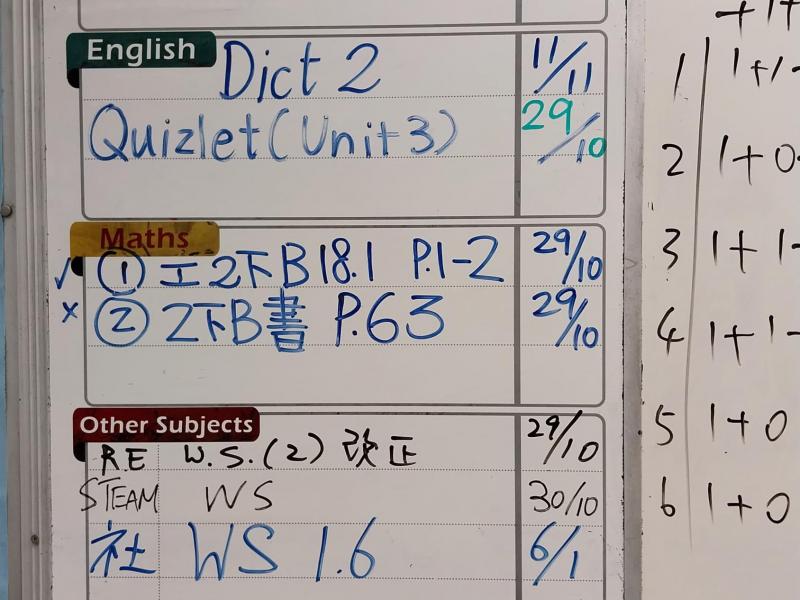 English
Dict 2 11/11
Quizlet (Unit 3) 29/10
Maths
✓ ① 工2下B 18.1 P.1-2 29/10
× ② 2下B書 P.63 29/10
Other Subjects
RE W.S.(2) 改正 29/10
STEAM WS 30/10
社 WS 1.6 6/1
+1+
1 1+1-
2 1+0-
3 1+1-
4 1+1-
5 1+0
6 1+0